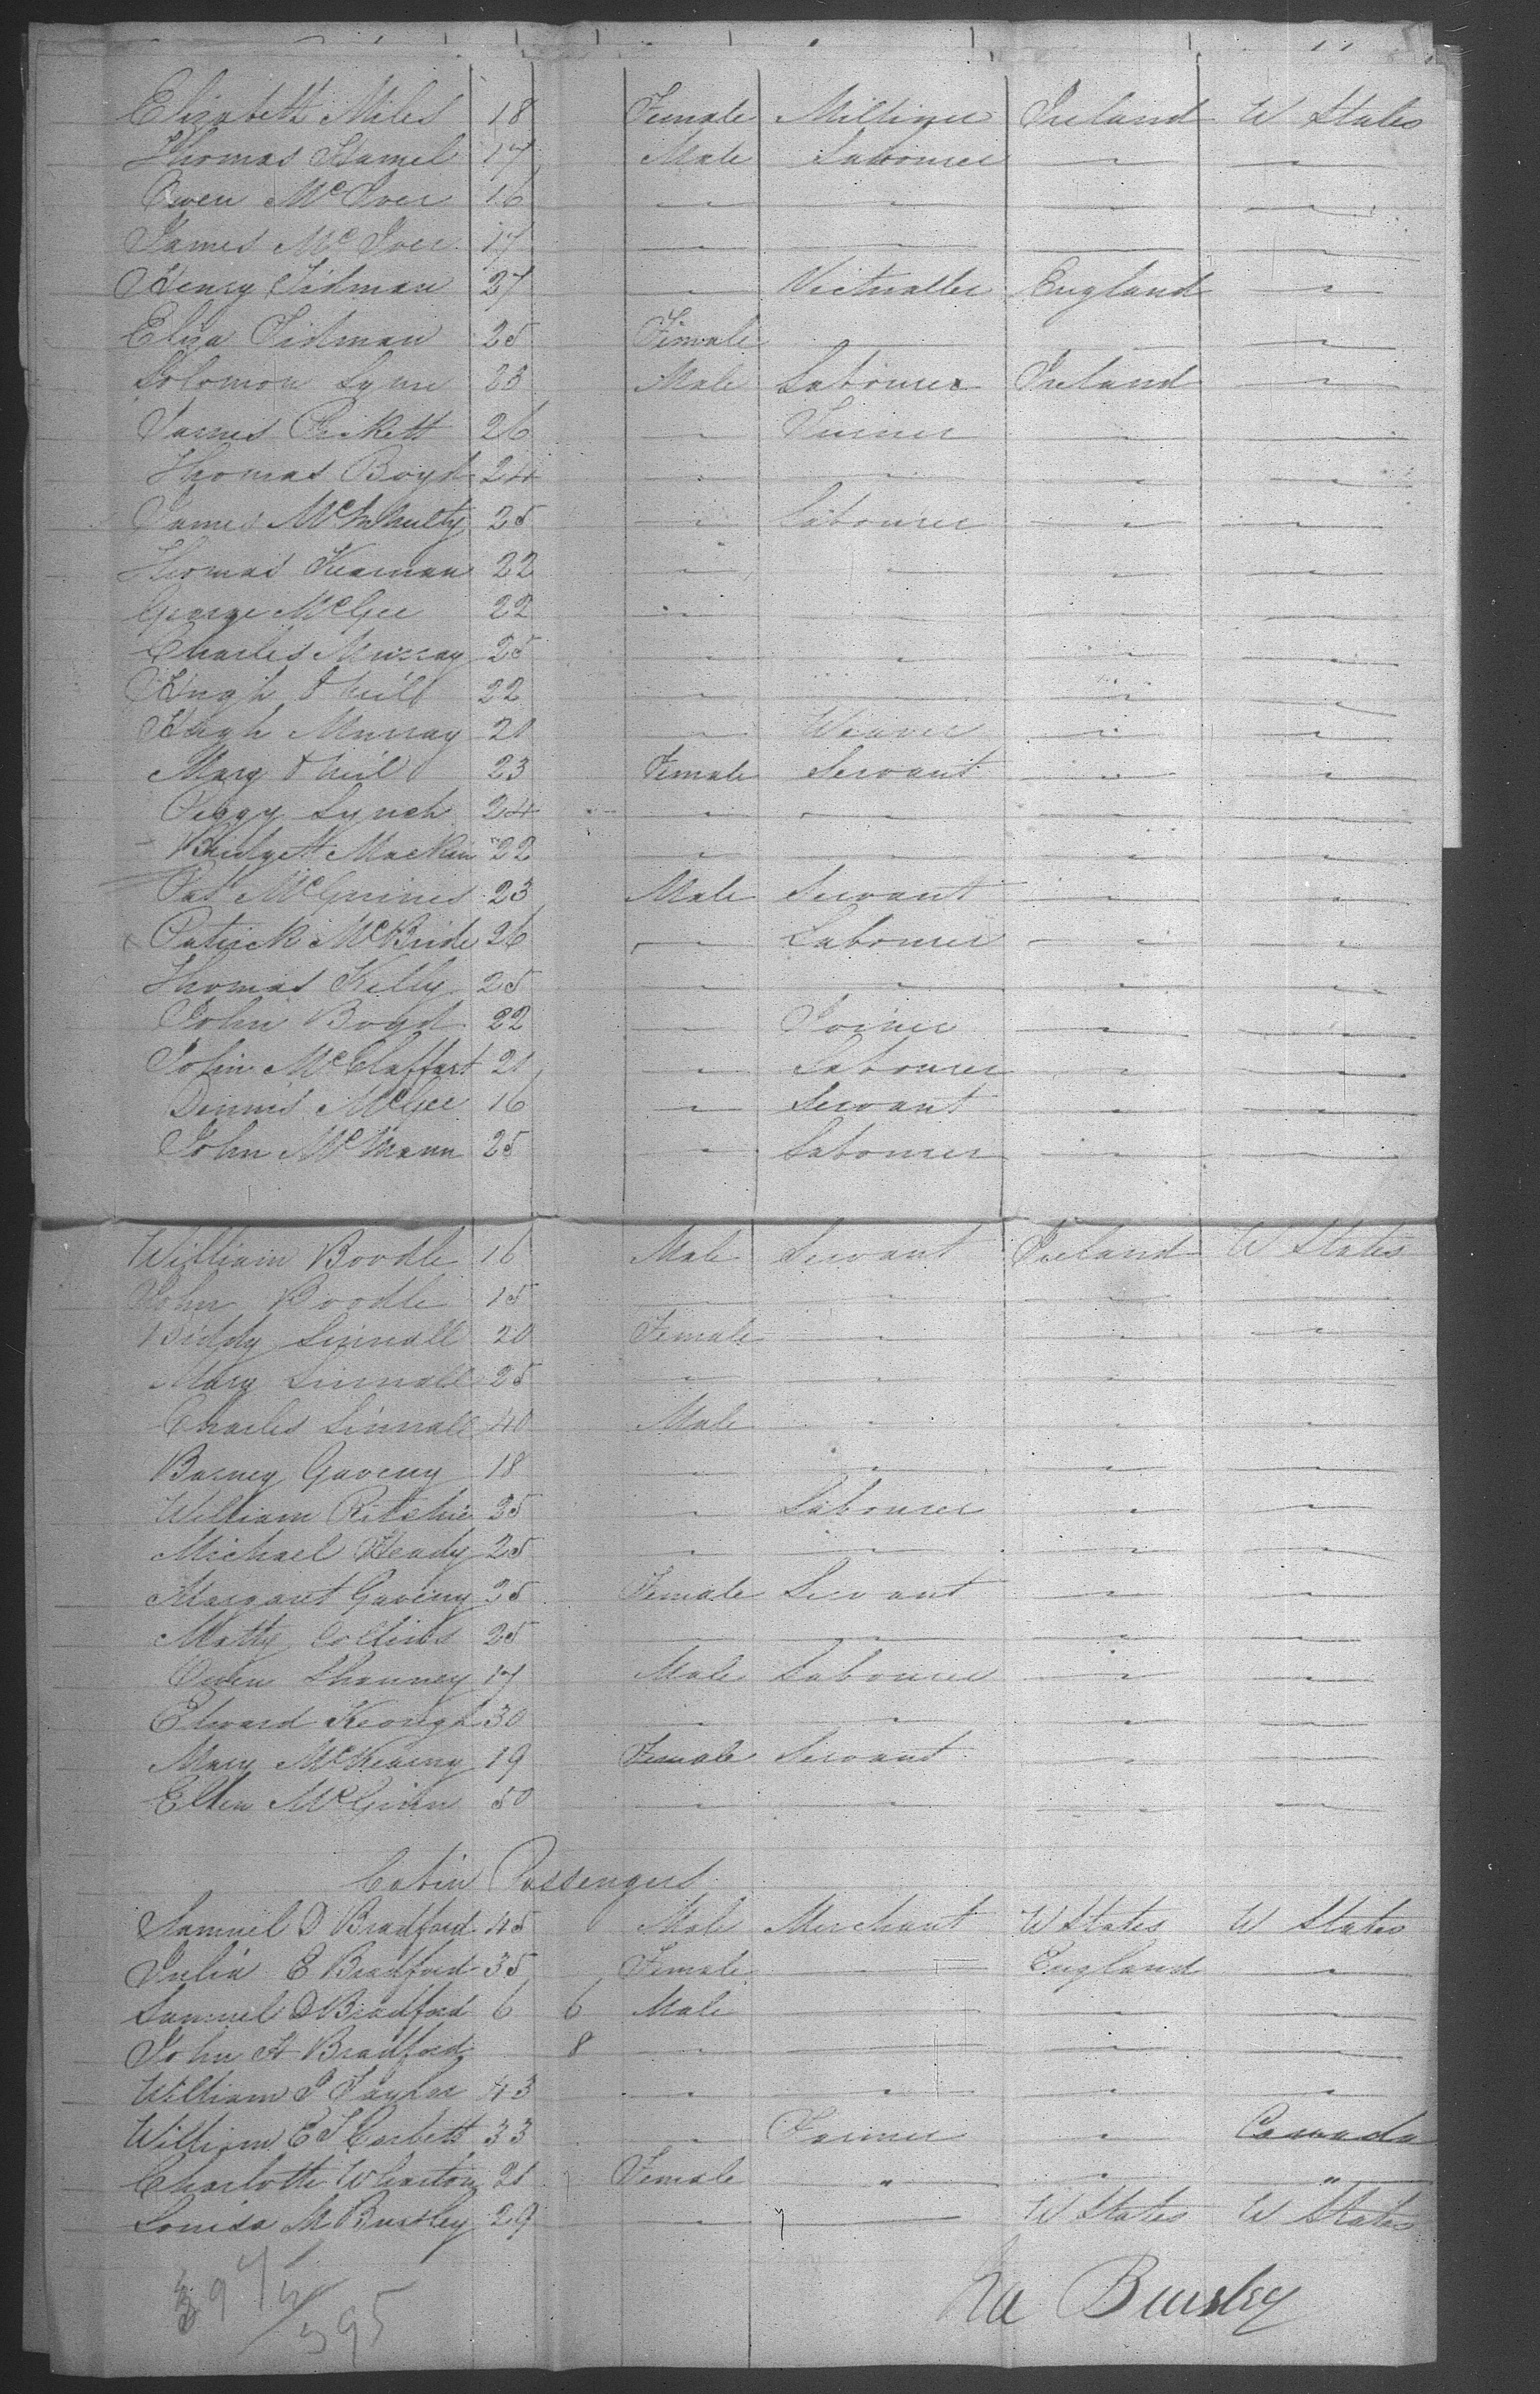 Elizabeth Miles 18 Female Milliner Ireland U States
Thomas Hamel 17 Male Labourer " "
Owen McIver 16 " " " "
James McIver 17 " " " "
Henry Tidman 27 " Victualler England "
Eliza Tidman 25 Female " " "
Solomon Lynn 23 Male Labourer Ireland "
James Pickett 26 " Turner " "
Thomas Boyd 24 " " " "
James McAnulty 25 " Labourer " "
Thomas Kearnan 22 " " " "
George McGee 22 " " " "
Charles Murray 25 " " " "
Hugh O Neil 22 " " " "
Hugh Murray 20 " Weaver " "
Mary O Neil 23 Female Servant " "
Peggy Lynch 24 " " " "
Bridgett Mackin 22 " " " "
Pat McGuines 23 Male Servant " "
Patrick McBride 26 " Labourer " "
Thomas Kelly 25 " " " "
John Boyd 22 " Joiner " "
John McClaffart 21 " Labourer " "
Dennis McGee 16 " Servant " "
John McMann 25 " Labourer " "
William Boodle 16 Male Servant Ireland U States
John Boodle 15 " " " "
Biddy Linnall 20 Female " " "
Mary Linnall 25 " " " "
Charles Linnall 40 Male " " "
Barney Gaveny 18 " " " "
William Ritchie 35 " Labourer " "
Michael Heady 25 " " " "
Margaret Gaveny 35 Female Servant " "
Matty Collins 25 " " " "
Owen Shanney 17 Male Labourer " "
Edward Keough 30 " " " "
Mary McKearny 19 Female Servant " "
Ellen McGinn 50 " " " "
Cabin Passengers
Samuel D Bradford 45 Male Merchant U States U States
Julia E Bradford 35 Female England "
Samuel D Bradford 6 6 Male " " "
John H Bradford 8 " " " "
William J Taylor 43 " " " "
William E J Corbett 33 " Farmer " Canada
Charlotte Wharton 21 Female " " "
Louisa M Bursley 29 " U States U States
Ira Bursley
395